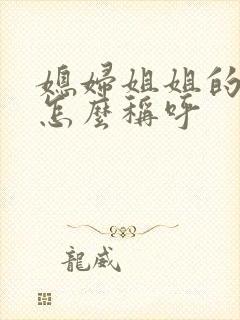 媳婦姐姐的
怎麼稱呼
龍威